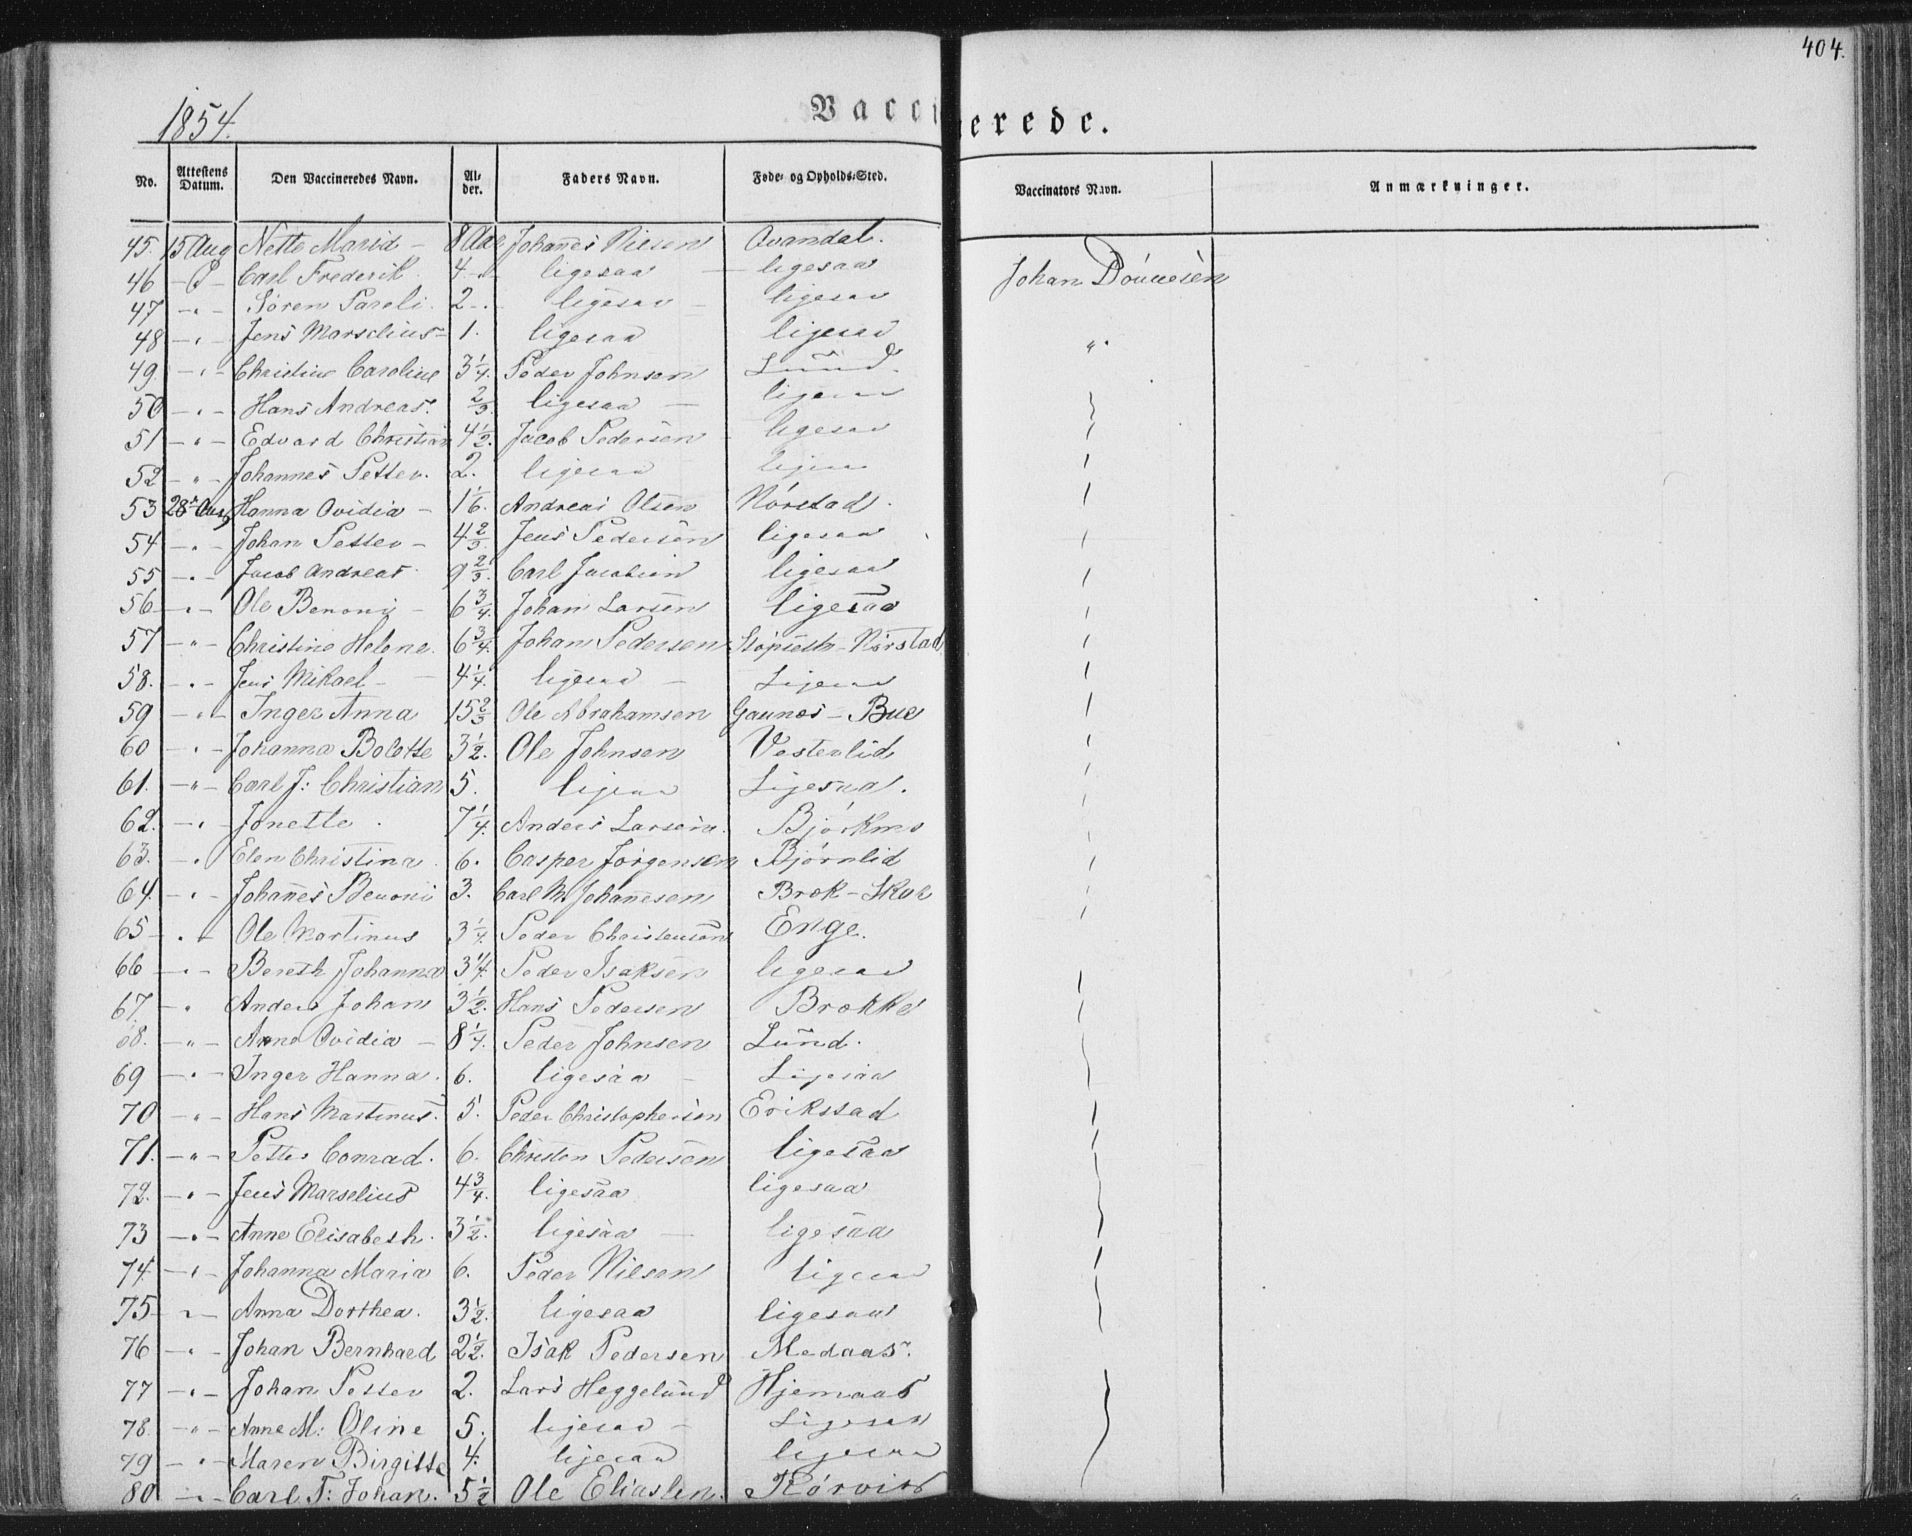 404.
1854.
Vaccinerede.
No. Attestens Datum. Den Vaccineredes Navn. Al-der. Faders Navn. Føde- og Opholds-Sted. Vaccinators Navn. Anmærkninger.
45. 15 Aug Nette Maria - 8 Aar Johanes Nilsen Qvandal.
46 - " - Carl Frederik 4 - ligesaa - ligesaa Johan
47 - " - Søren Pareli. 2 - ligesaa - ligesaa
48 - " - Jens Marselius - 1. ligesaa ligesaa "
49. - " - Christine Caroline 3 1/4. Peder Johnsen Lund.
50 - " - Hans Andreas. 2/3. ligesaa - ligesaa
51 - " - Edvard Christian 4 1/2. Jacob Pedersen - ligesaa
52 - " - Johannes Petter. 2. ligesaa ligesaa
53 28de Aug Hanna Ovidia - 1 1/6. Andreas Olsen Nørstad.
54 - " - Johan Petter - 4 2/3. Jens Pedersen ligesaa
55 - " - Jacob Andreas 9 2/3. Carl Jacobsen ligesaa
56 - " - Ole Benoni - 6 3/4. Johan Larsen ligesaa
57 - " - Christine Helene. 6 3/4. Johan Pedersen Nørstad
58. - " - Jens Mikael - 4 1/4. ligesaa - Ligesaa
59 - " - Inger Anna 15 2/3 Ole Abrahamsen Gaunæs - Bue
60 - " - Johanna Bolette 3 1/2. Ole Johnsen Vesterlid
61. - " - Carl J: Christian 5. ligesaa Ligesaa.
62. - " - Jonette. 7 1/4. Anders Larsen.
63. - " Elen Christina. 6. Casper Jørgensen Bjørnlid
64. - " - Johanes Benoni 3. Carl M. Johanesen Brok - Skar
65 - " - Ole Martinus 3 1/4. Peder Christensen Enge.
66 - " - Bereth Johanna 3 1/4. Peder Isaksen ligesaa
67. " Anders Johan 3 1/2. Hans Pedersen Brokke
68. - " - Anne Ovidia - 8 1/4. Peder Johnsen Lund.
69 - " - Inger Hanna. 6. ligesaa - Ligesaa
70 - " - Hans Martinus. 5. Peder Christophersen Erikstad
71. - " - Petter Conrad. 6. Christen Pedersen ligesaa
72. - " - Jens Marselius 4 3/4. ligesaa ligesaa
73 - " - Anne Elisabeth. 3 1/2. ligesaa - ligesaa
74. - " - Johanna Maria 6. Peder Nilsen ligesaa
75 - " - Anna Dorthea. 3 1/2. ligesaa ligesaa
76 - " - Johan Bernhard 2 1/2. Isak Pedersen Medaas.
77 - " - Johan Petter 2. Lars Heggelund Hjemaas
78. - " - Anne M: Oline 5. ligesaa - Ligesaa
79 - " - Maren Birgitte 4. ligesaa ligesaa
80 - " - Carl T: Johan. 5 1/2 Ole Eliassen.